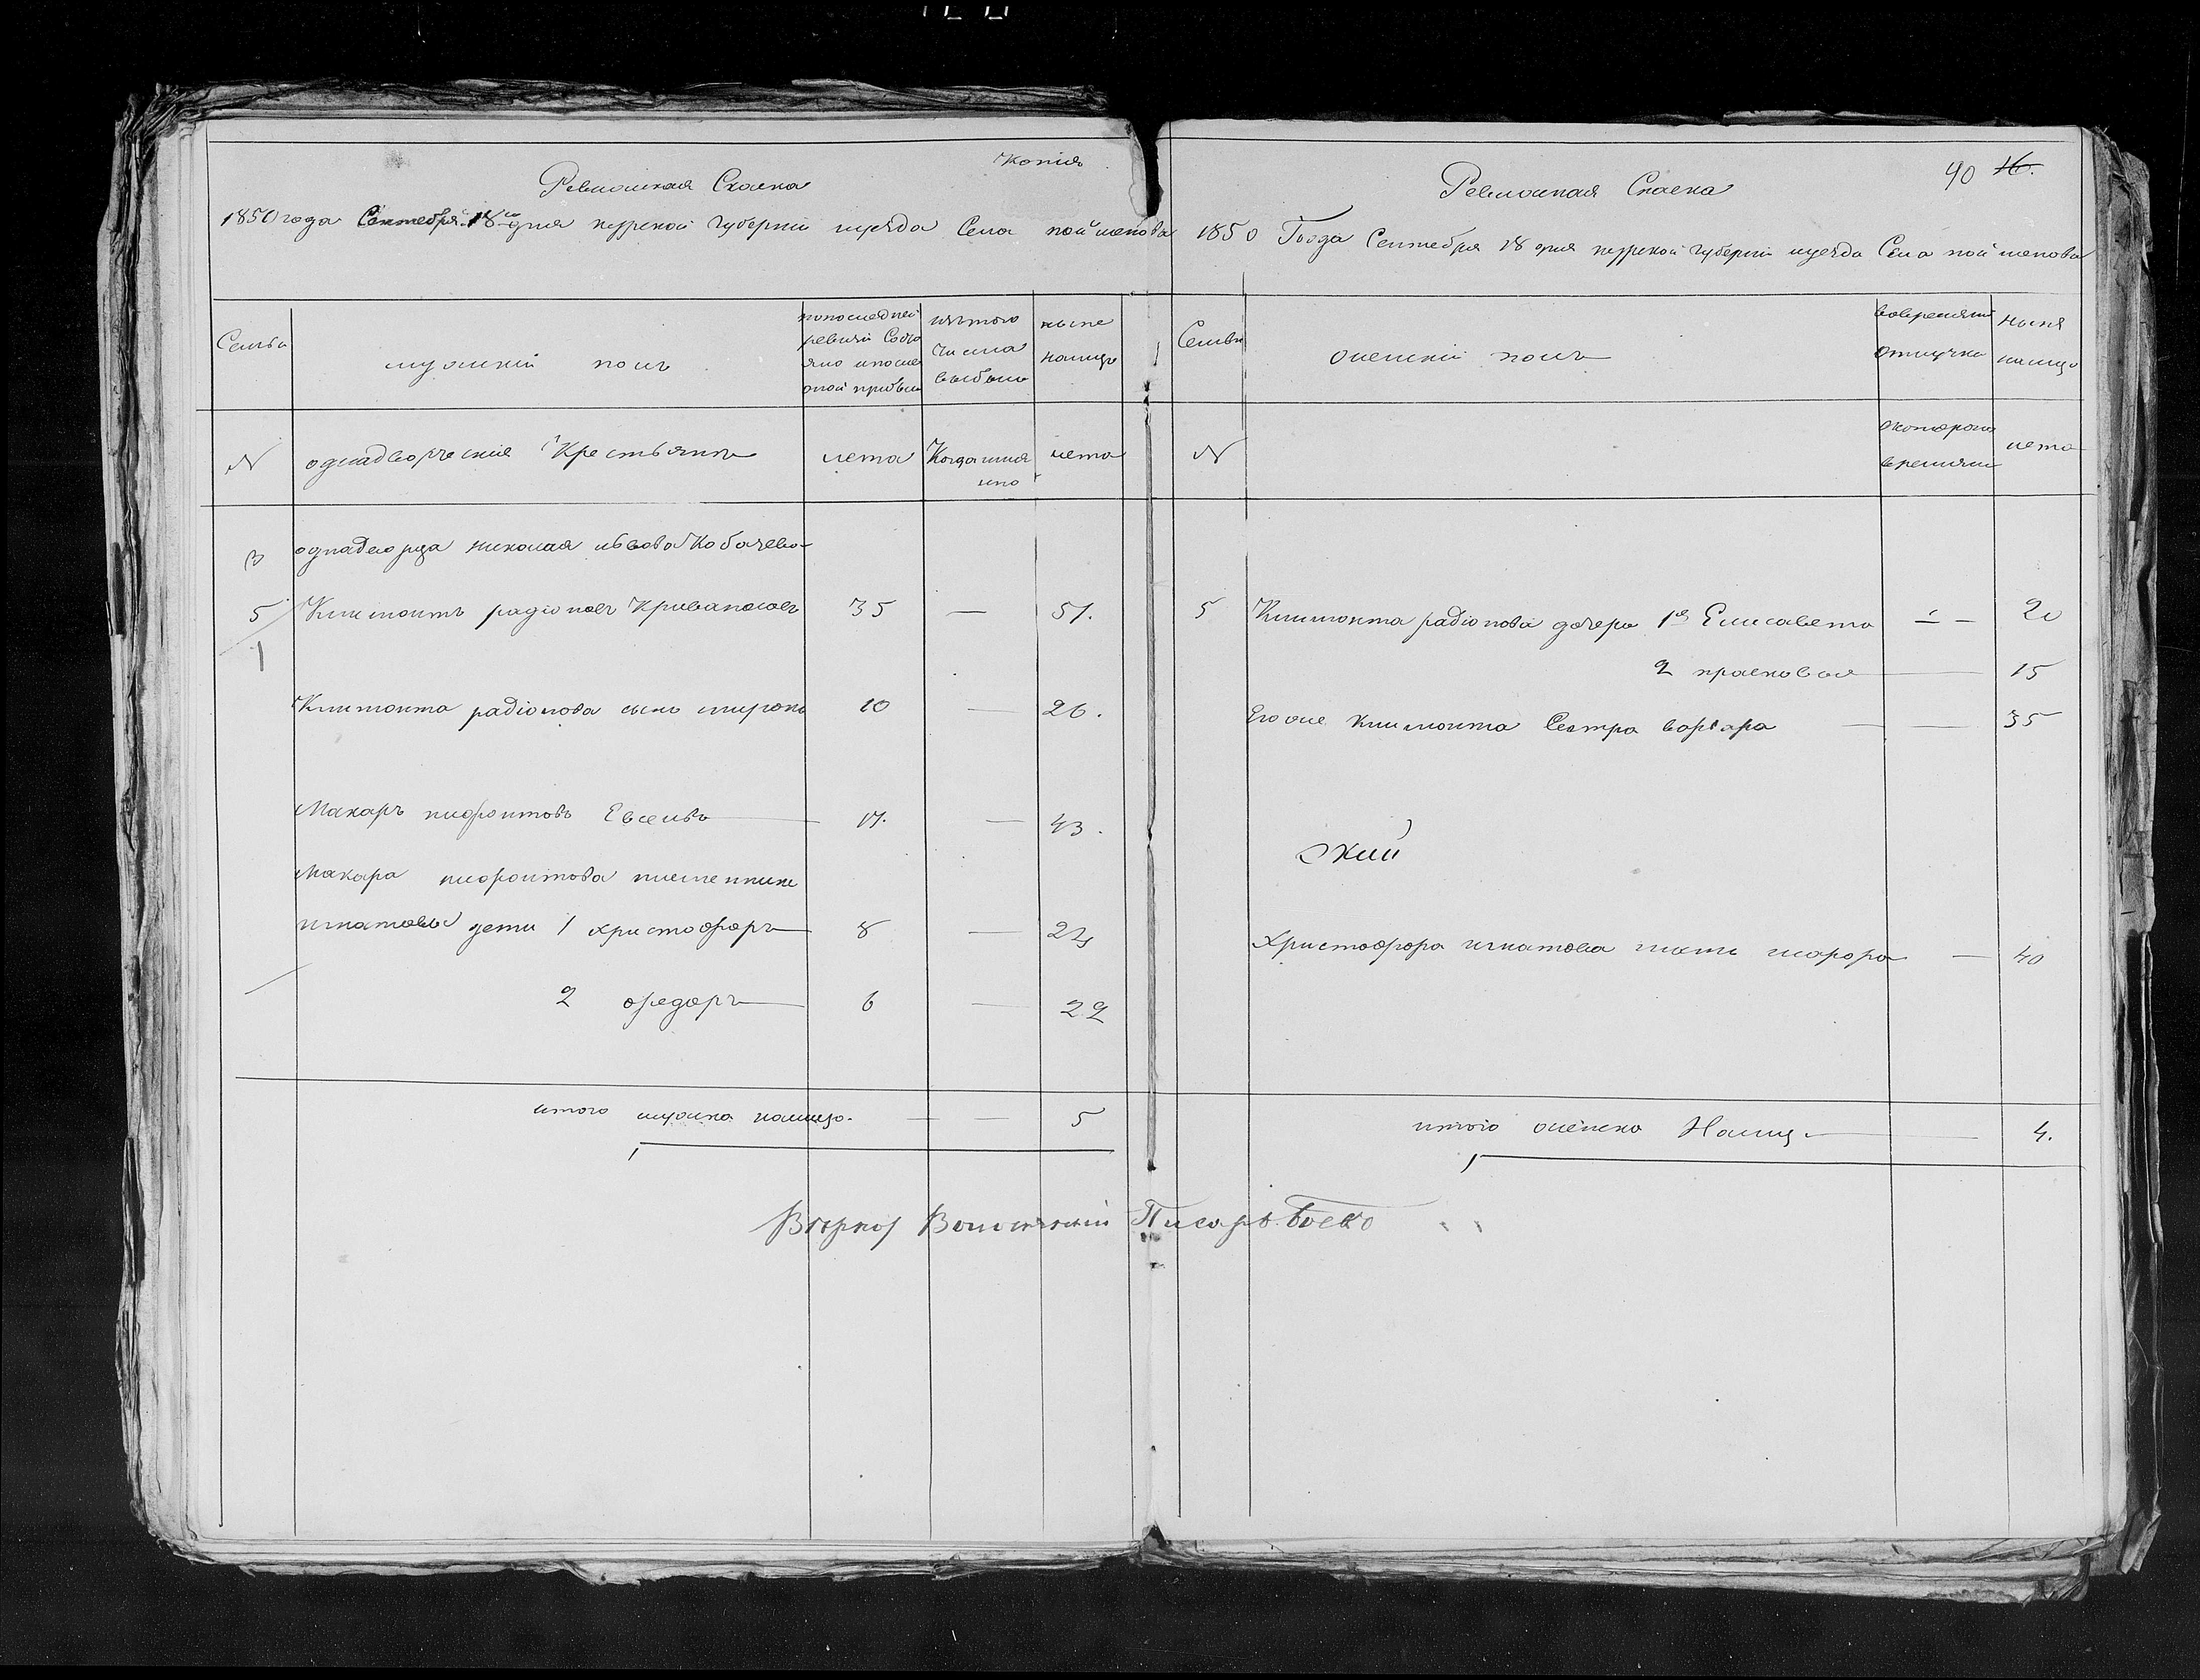 копія
Ревизская Сказка
1850 года Сентебря 18го дня курской губерній иуезда Села пойменова
Семьи
мужскій полъ
попоследней ревизіи Состояло ипосле оной прибыло
изътого числа выбыло
ныне налицо
N
однадворческие Крестьяне
лета
Когда имянно
лета
3
однадворца николая львова Кобачева
5 Климонтъ радіоновъ Криваполовъ 35 — 51.
1
Климонта радіонова сынъ миронъ 10 — 26.
Макаръ ниѳонтовъ Евсевъ 17. — 43.
Макара ниѳонтова племенники
игнатовы дети 1 христоѳоръ 8 — 24
2 ѳедоръ 6 — 22
итого мужска налицо. — — 5
90 16.
Ревизская Сказка
1850 Года Сентебря 18 дня курской губерніи иуезда Села пойменова
Семьи
женскій полъ
вовременной отлучке
ныня налицо
N
скоторого времяни
лета
5 Климонта радіонова дочери 1я Елисавета — — 20
2 прасковья — 15
Егоже климонта Сестра варвара — — 35
Христоѳора игнатова мать марѳа — 40
итого женска Налицо — 4.
Верно Волостной Писарь